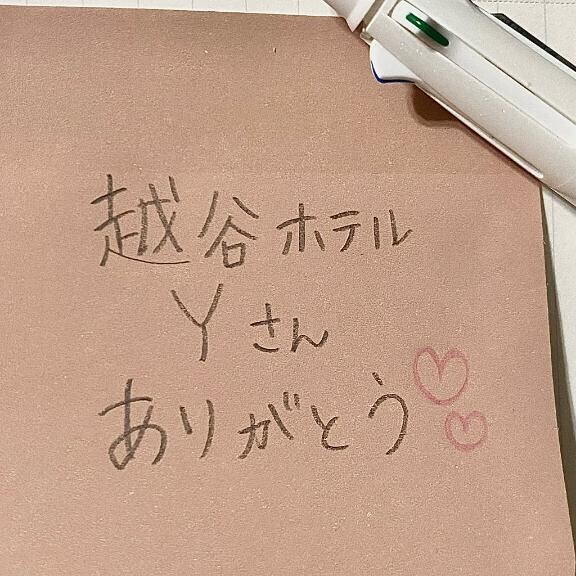 越谷ホテル
Yさん
ありがとう